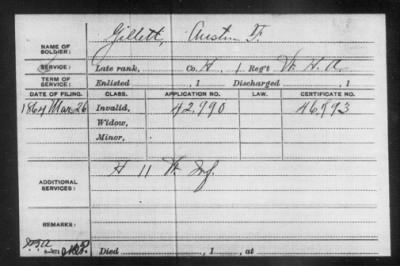 NAME OF SOLDIER: Gillett, Austin F.
SERVICE: Late rank, Co. H, 1 Reg't Vt. H. A.
TERM OF SERVICE: Enlisted , 1 Discharged , 1
DATE OF FILING. CLASS. APPLICATION NO. LAW. CERTIFICATE NO.
1864 Mar 26 Invalid, 42.990
Widow,
Minor,
ADDITIONAL SERVICES: H 11 Vt. Inf.
REMARKS:
Died , 1 , at